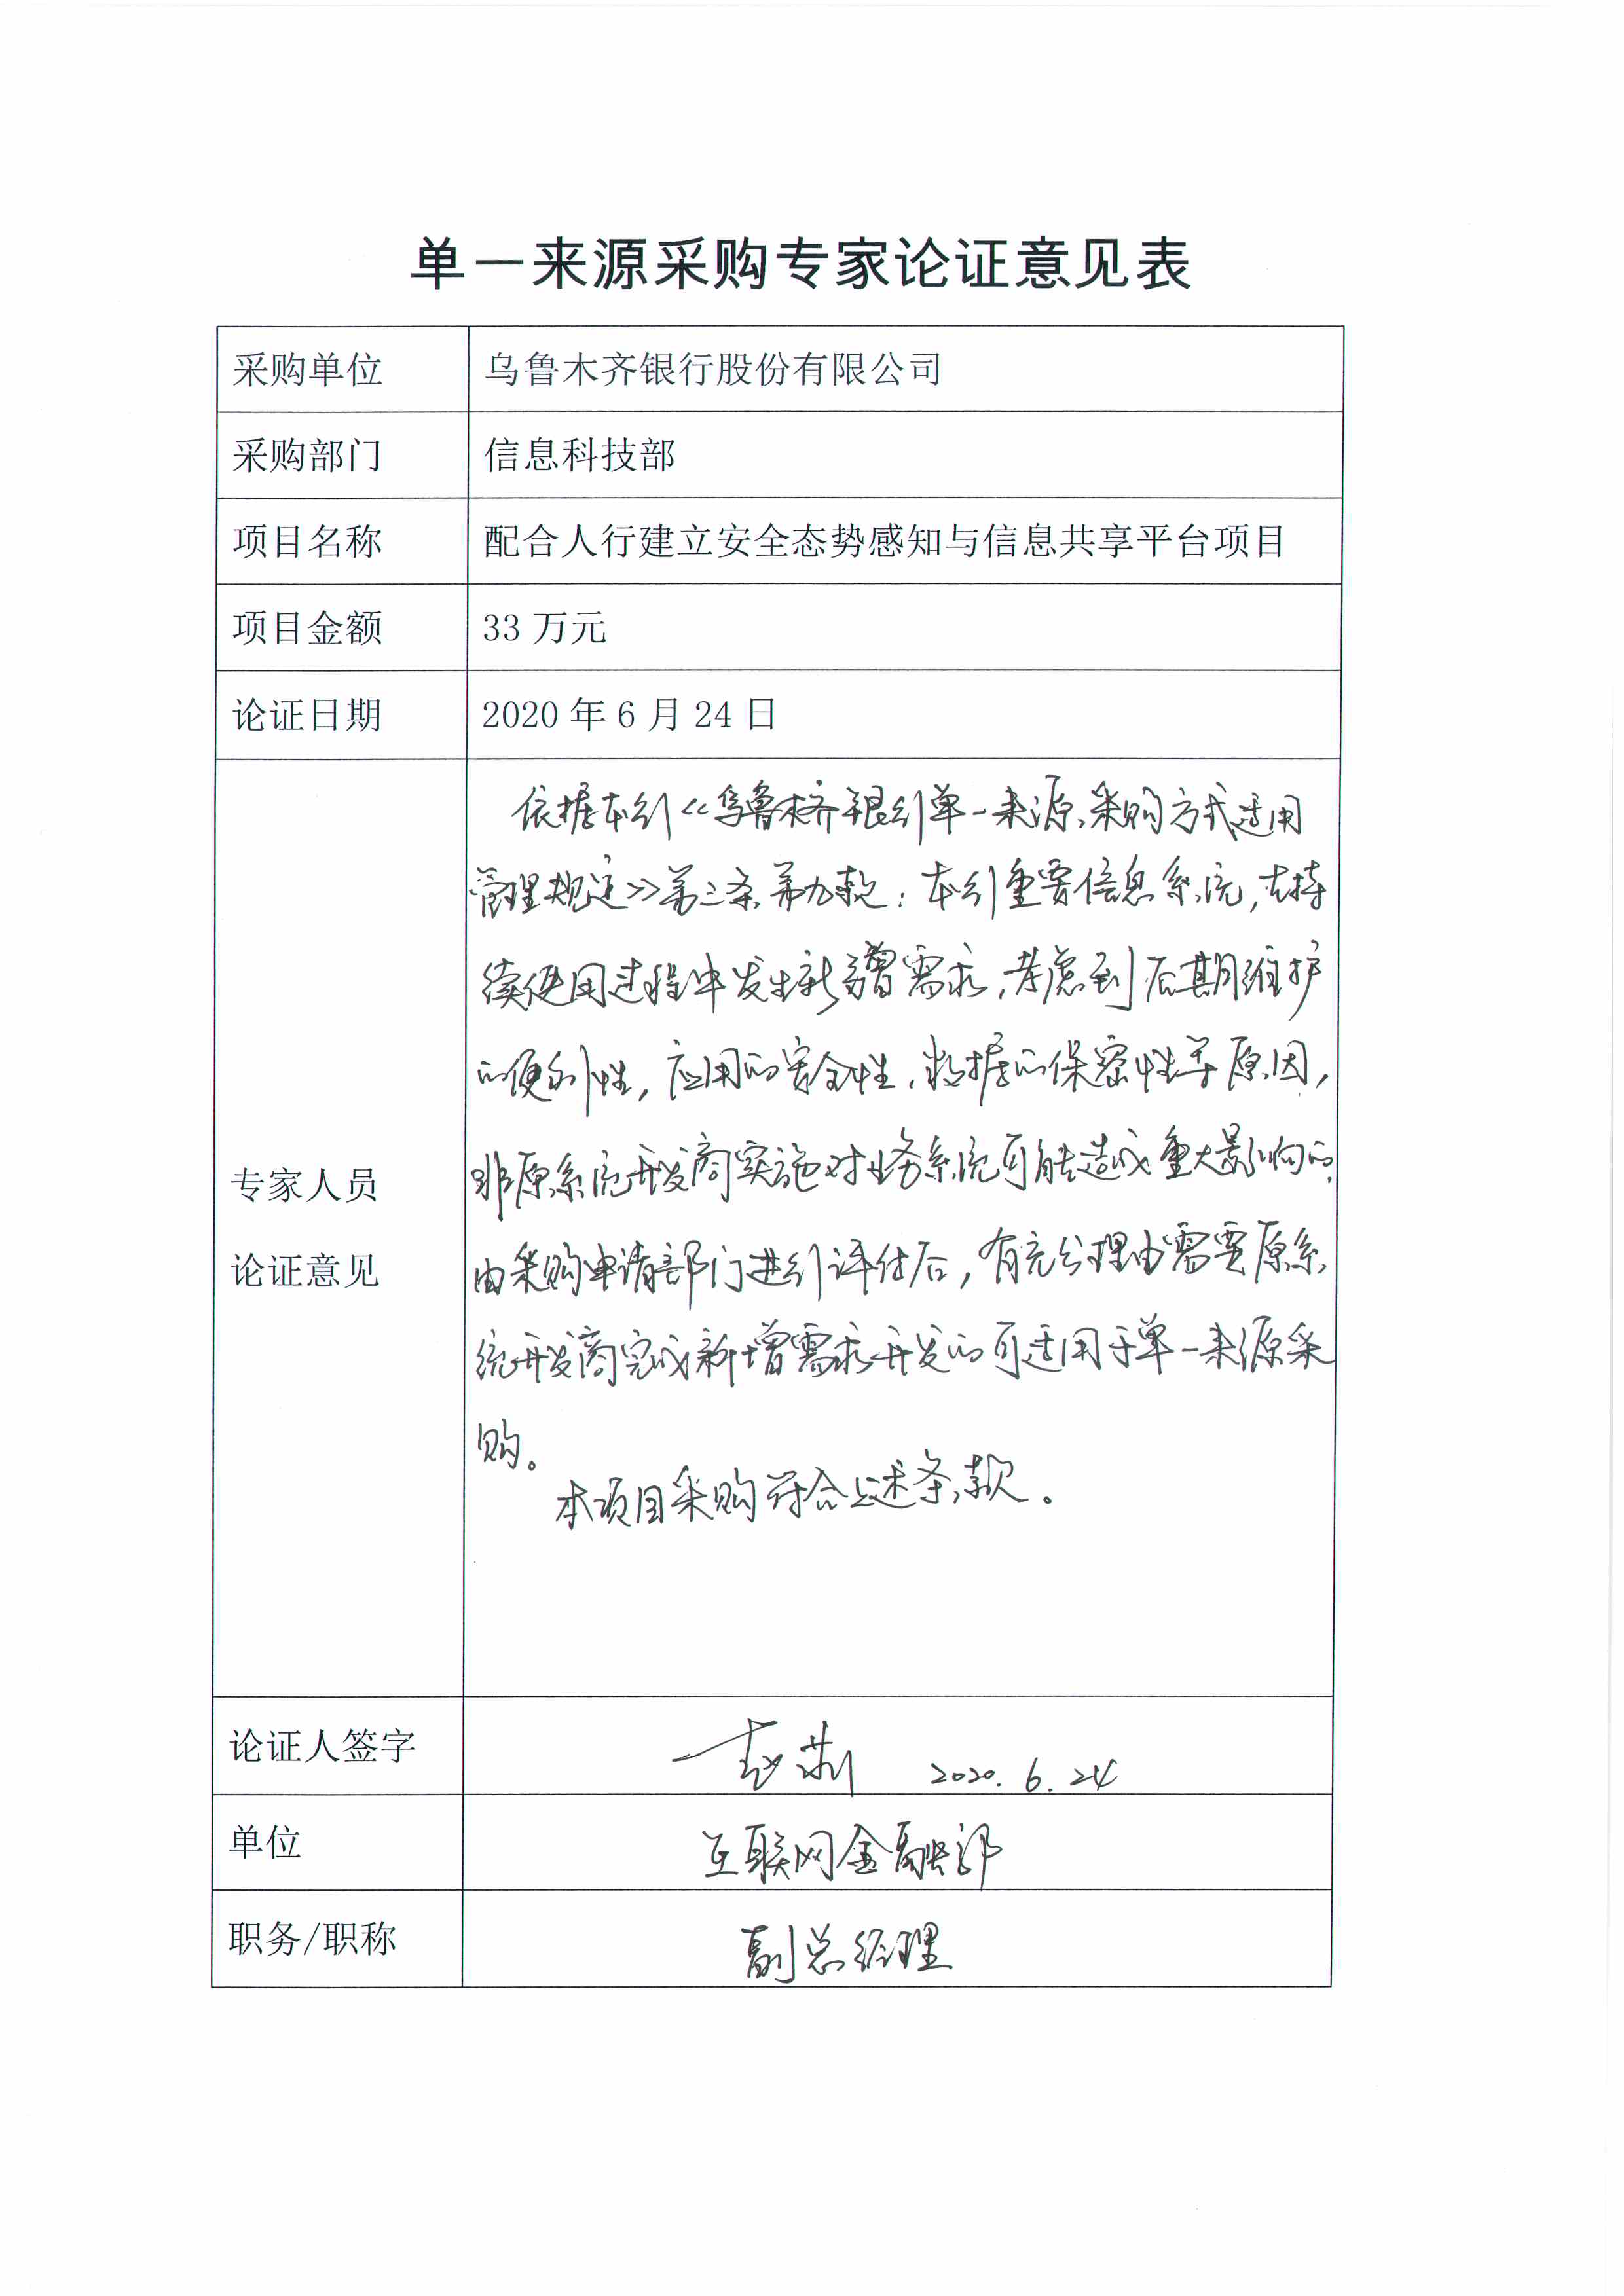 单一来源采购专家论证意见表
采购单位 乌鲁木齐银行股份有限公司
采购部门 信息科技部
项目名称 配合人行建立安全态势感知与信息共享平台项目
项目金额 33 万元
论证日期 2020 年 6 月 24 日
专家人员
论证意见
依据本行《乌鲁木齐银行单一来源采购方式适用
管理规定》第三条第九款：本行重要信息系统，在持
续使用过程中发生新增需求，考虑到后期维护
的便利性，应用的安全性，数据的保密性等原因，
非原系统开发商实施对业务系统可能造成重大影响的，
由采购申请部门进行评估后，有充分理由需要原系
统开发商完成新增需求开发的可适用于单一来源采
购。
本项目采购符合上述条款。
论证人签字 赵 2020.6.24
单位 互联网金融部
职务/职称 副总经理